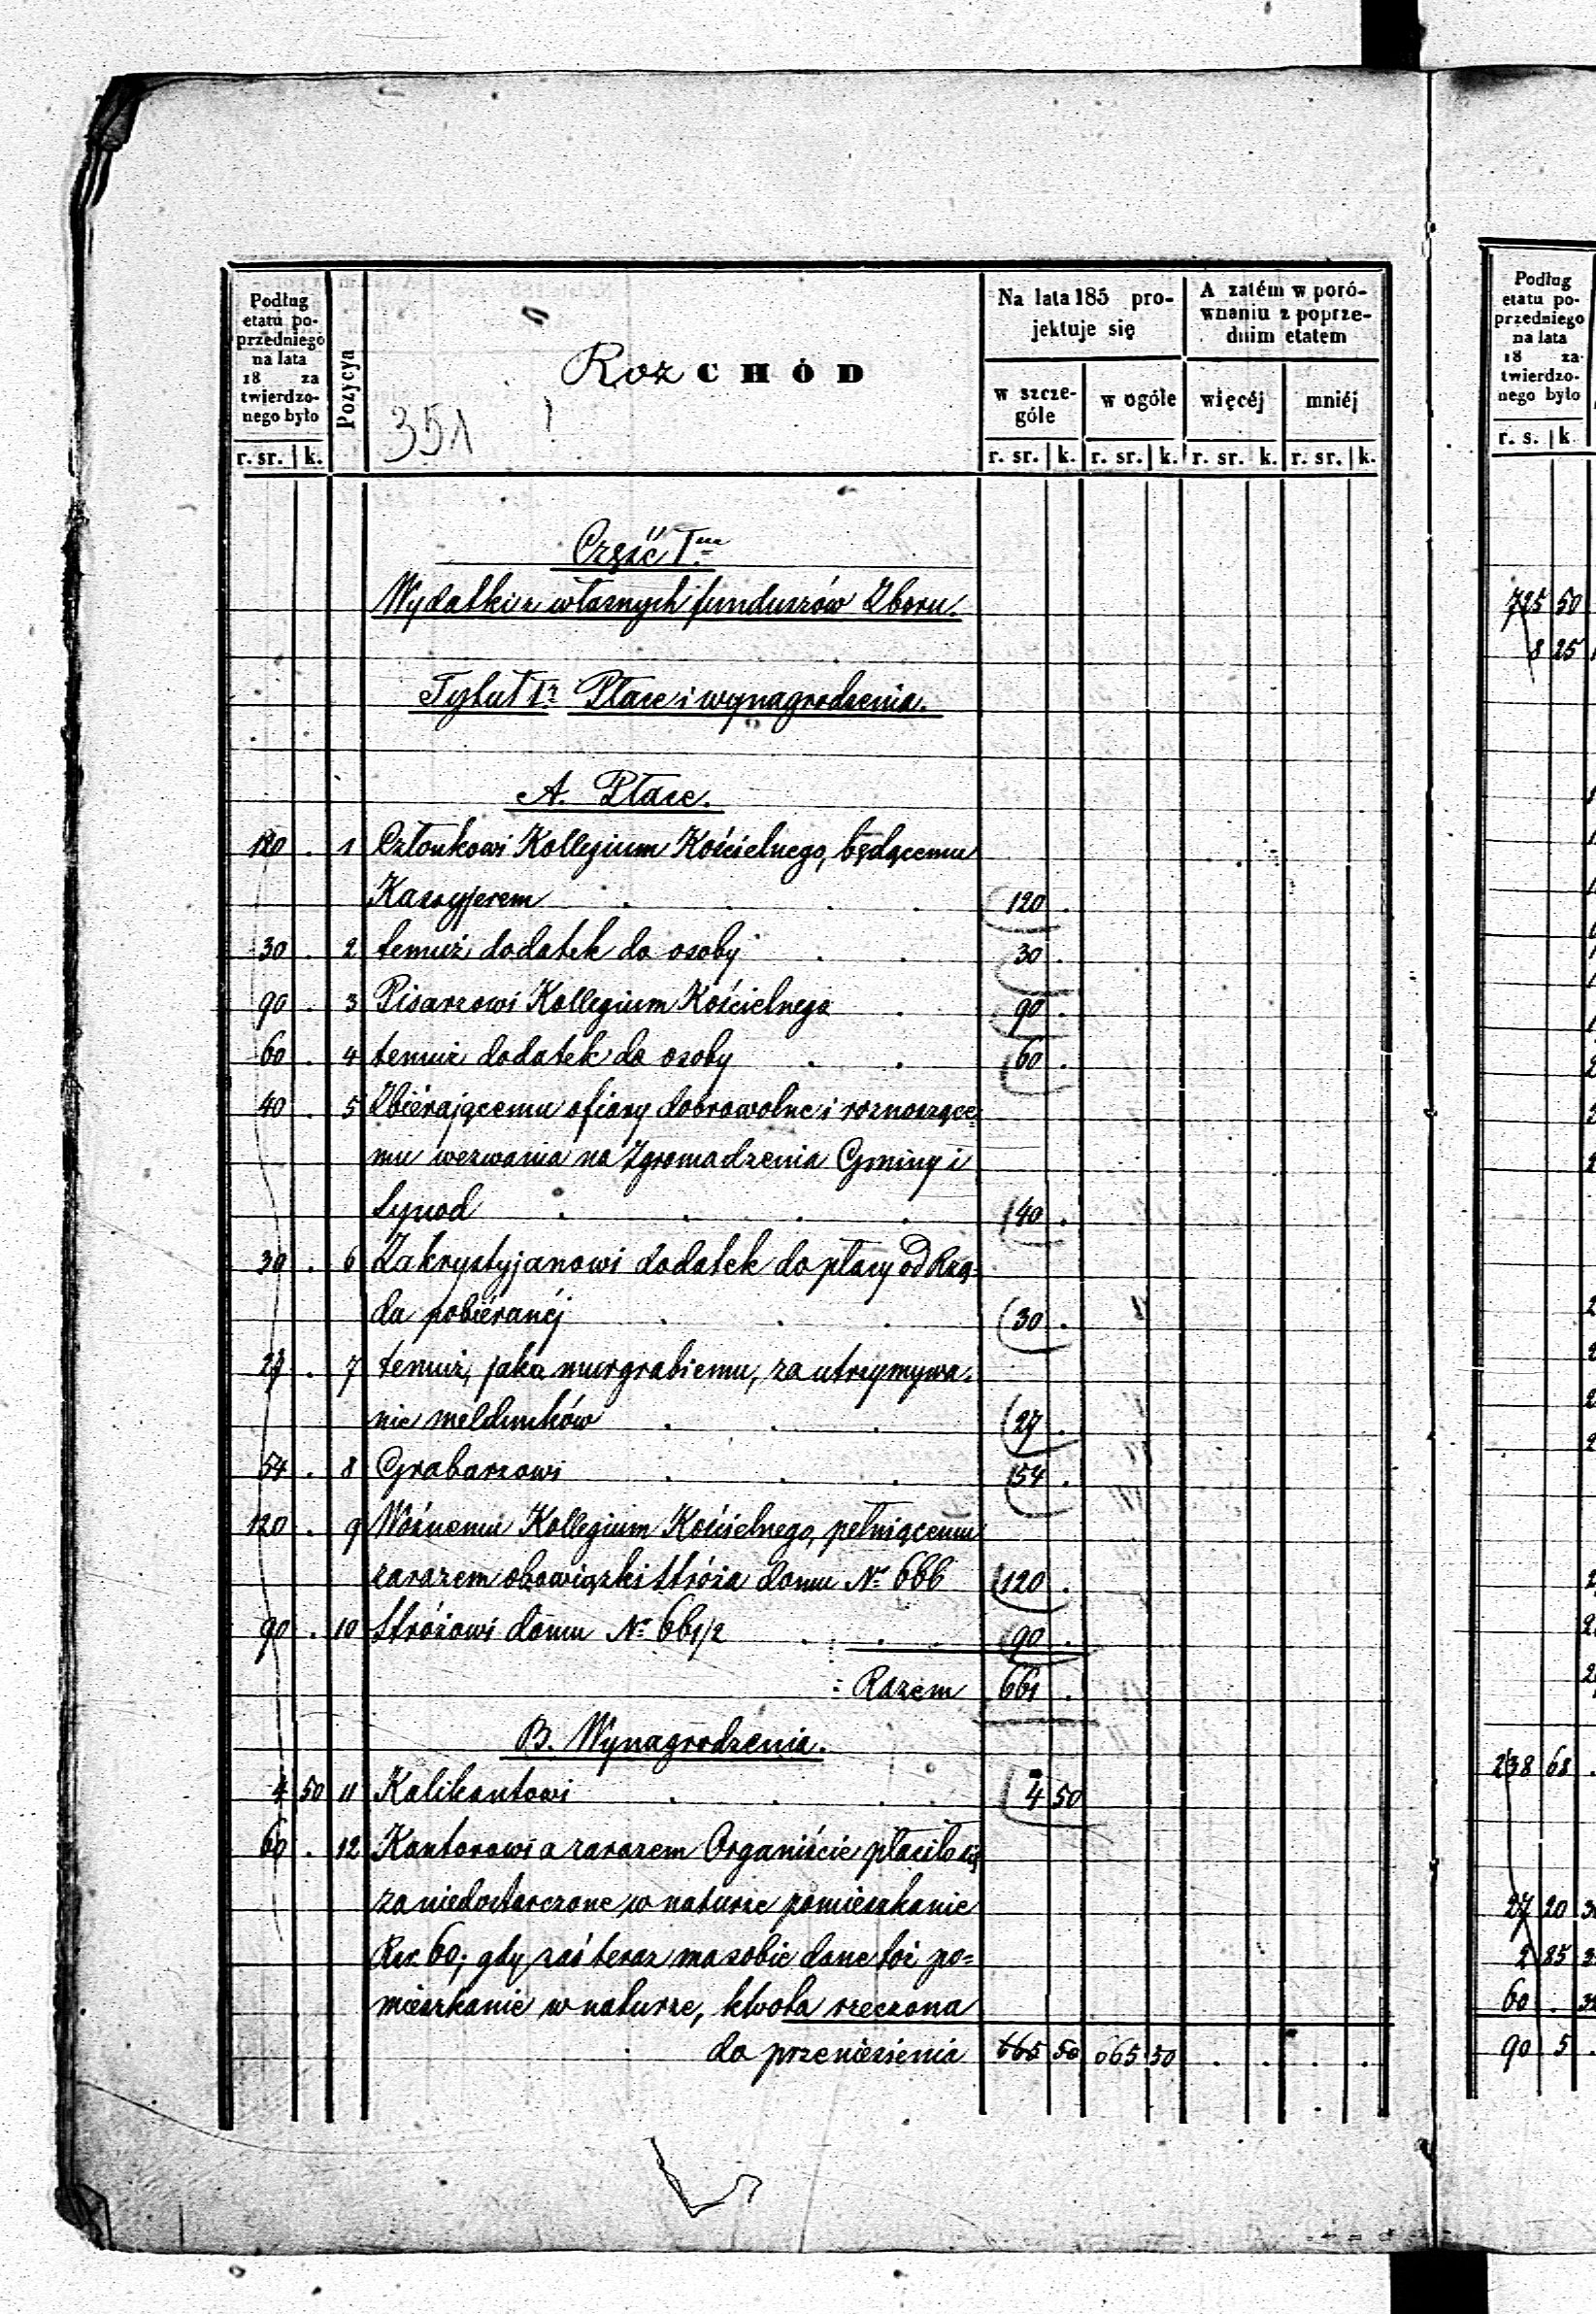 Podług
etatu po-
przedniego
na lata
18 za
twierdzo-
nego było
r. sr. k.
Pozycya
Roz CHÓD
351
Na lata 185 pro-
jektuje się
w szcze-
góle
r. sr. k.
w ogóle
r. sr. k.
A zatém w poró-
wnaniu z poprze-
dnim etatem
więcéj
r. sr. k.
mniéj
r. sr. k.
Część I.
Wydatki z własnych funduszów Zboru.
Tytuł I. Płace i wynagrodzenia.
A. Płace.
120 . 1 Członkowi Kollegium Kościelnego, będącemu
Kassyjerem . . . . 120 .
30 . 2 temuż dodatek do osoby . . 30 .
90 . 3 Pisarzowi Kollegium Kościelnego . 90 .
60 . 4 temuż dodatek do osoby . . 60 .
40 . 5 Zbiérającemu ofiary dobrowolne i roznoszące-
mu wezwania na Zgromadzenia Gminy i
Synod . . . . 40 .
30 . 6 Zakrystyjanowi dodatek do płacy od Rzą-
du pobiéranéj . . . 30 .
27 . 7 temuż, jako murgrabiemu, za utrzymywa-
nie meldunków . . . 27 .
54 . 8 Grabarzowi . . . 54 .
120 . 9 Woźnemu Kollegium Kościelnego, pełniącemu
zarazem obowiązki stróża domu No 666 120 .
90 . 10 Stróżowi domu No 661/2 . . . 90 .
Razem 661 .
B. Wynagrodzenia.
4 50 11 Kalikantowi . . . . 4 50
60 . 12 Kantorowi a zarazem Organiście płaciło się
za niedostarczone w naturze pomieszkanie
Rsr. 60; gdy zaś teraz ma sobie dane toż po=
mieszkanie w naturze, kwota rzeczona
do przeniesienia 665 50 665 50 . . . .
Podług
etatu po-
przedniego
na lata
18 za-
twierdzo-
nego było
r. s. k
725 50
8 25
238 68
27 20
2 85
60 .
90 5